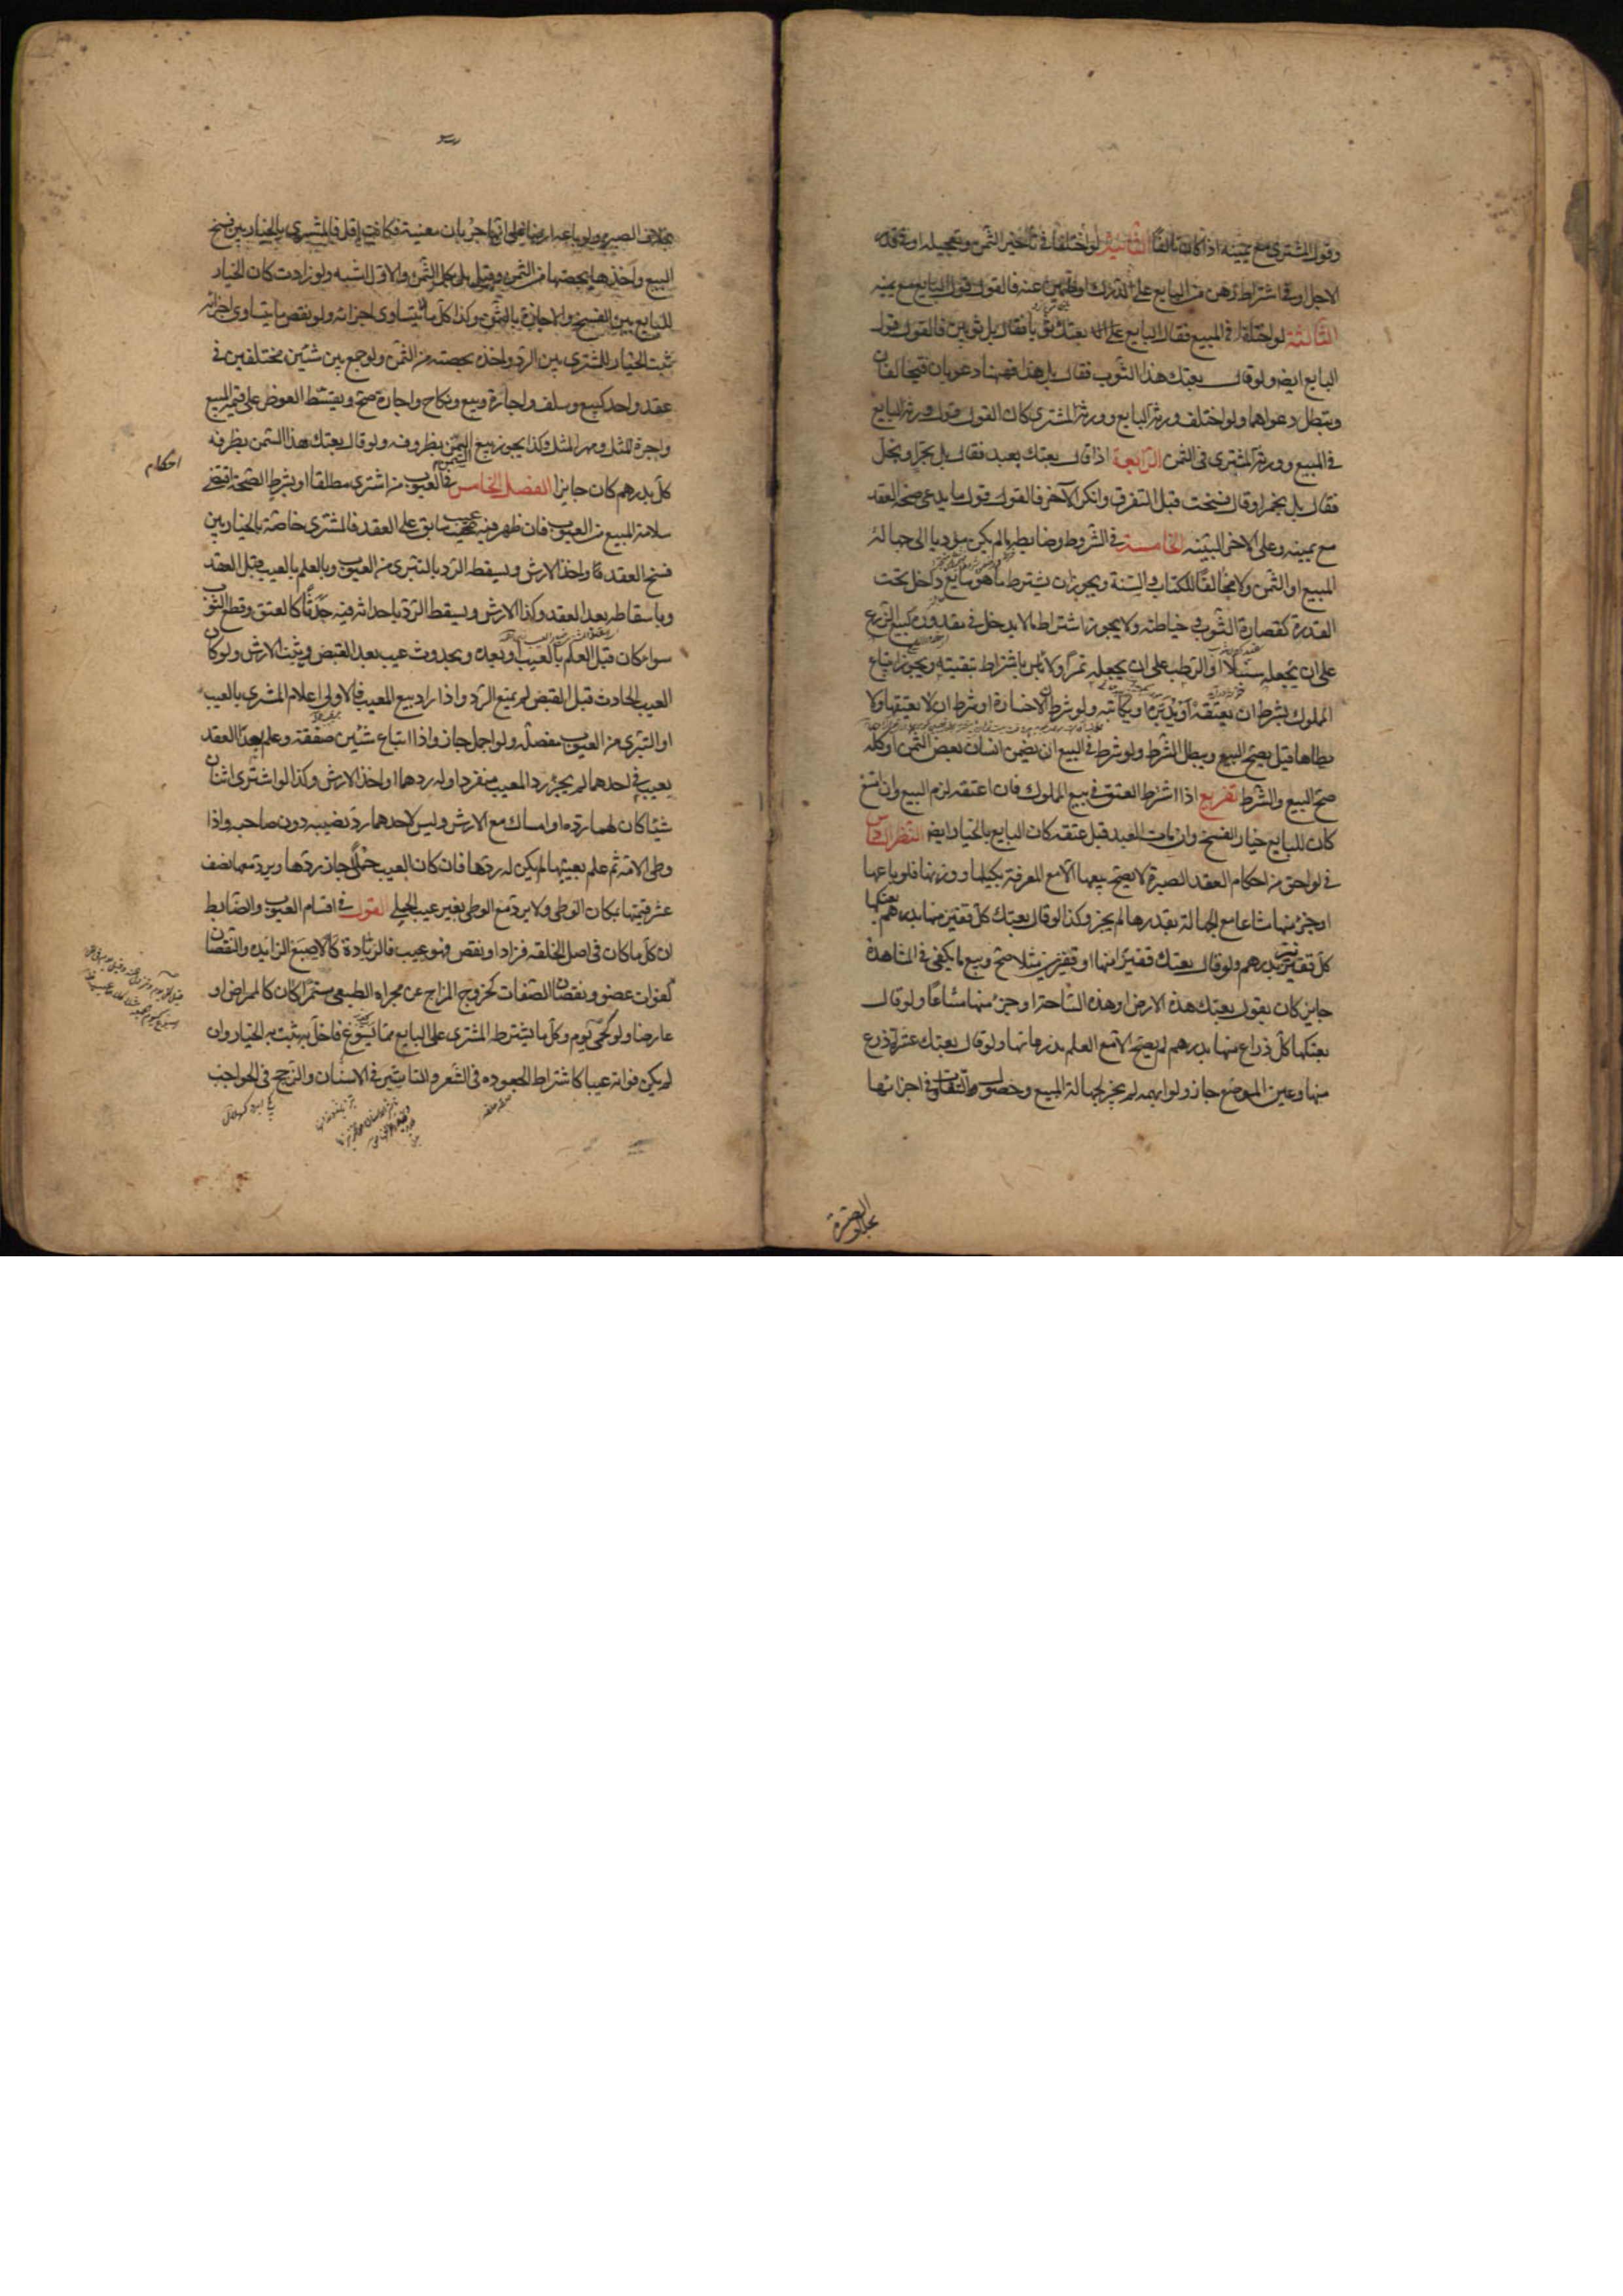 وقول المشتري مع يمينه اذا كان تالفا الثانية لو اختلفا في تأخير الثمن وتعجيله او في قدر
الاجل او في اشتراط رهن من البايع على الدرك او ضمين عنه فالقول قول البايع مع يمينه
الثالثة لو اختلفا في المبيع فقال البايع بعتك ثوبا فقال بل ثوبين فالقول قول
البايع ايضا ولو قال بعتك هذا الثوب فقال بل هذا فههنا دعويان فيتحالفان
وتبطل دعواهما ولو اختلف ورثة البايع وورثة المشتري كان القول قول ورثة البايع
في المبيع وورثة المشتري في الثمن الرابعة اذا قال بعتك بعبد فقال بل بحر او بخل
فقال بل بخمر او قال فسخت قبل التفرق وانكر الآخر فالقول قول ما يدعي صحة العقد
مع يمينه وعلى الاخر البينه الخامسة في الشروط وضابطه ما لم يكن مؤديا الى جهالة
المبيع او الثمن ولا مخالفا للكتاب والسنة ويجوز ان يشترط ما هو سايغ داخل تحت
القدرة كقصارة الثوب وخياطته ولا يجوز اشتراط ما لا يدخل في مقدوره كبيع الزرع
على ان يجعله سنبلا او الرطب على ان يجعله تمرا ولا بأس باشتراط تبقيته ويجوز ابتياع
المملوك بشرط ان يعتقه او يدبره او يكاتبه ولو شرط ان لا خسارة او شرط ان لا يعتقها ولا
يطاها قيل يصح البيع ويبطل الشرط ولو شرط في البيع ان يضمن انسان بعض الثمن او كله
صح البيع والشرط تفريع اذا اشترط العتق في بيع المملوك فان اعتقه لزم البيع وان امتنع
كان للبايع خيار الفسخ وان مات العبد قبل عتقه كان البايع بالخيار ايضا النظر السادس
في لواحق من احكام العقد الصبرة لا يصح بيعها الا مع المعرفة بكيلها او وزنها فلو باعها
او جزء منها مشاعا مع الجهالة بقدرها لم يجز وكذا لو قال بعتك كل قفيز منها بدرهم او بعتكها
كل قفيز بدرهم ولو قال بعتك قفيزا منها او قفيزين مثلا صح وبيع ما يكفي في المشاهدة
جايز كان يقول بعتك هذه الارض او هذه الساحة او جزء منها مشاعا ولو قال
بعتكها كل ذراع منها بدرهم لم يصح الا مع العلم بذرعانها ولو قال بعتك عشرة اذرع
منها وعين الموضع جاز ولو ابهمه لم يجز لجهالة المبيع وحصول التفاوت في اجزائها
بخلاف الصبرة
بخلاف الصبره ولو باعه ارضا على انها جربان معينة فكانت اقل فالمشتري بالخيار بين فسخ
البيع واخذها بحصتها من الثمن وقيل بل بكل الثمن والاول اشبه ولو زادت كان الخيار
للبايع بين الفسخ والاجازة بالثمن وكذا كل ما لا يتساوى اجزائه ولو نقص ما يتساوى اجزائه
ثبت الخيار للمشتري بين الرد واخذه بحصته من الثمن ولو جمع بين شئين مختلفين في
عقد واحد كبيع وسلف واجارة وبيع ونكاح واجارة صح ويقسط العوض على قيمة المبيع
واجرة المثل ومهر المثل وكذا يجوز بيع السمن بظروفه ولو قال بعتك هذا السمن بظرفه
كل بدرهم كان جايزا الفصل الخامس في العيوب من اشترى مطلقا او بشرط الصحة اقتضى
احكام
سلامة المبيع من العيوب فان ظهر فيه عيب سابق على العقد فالمشتري خاصة بالخيار بين
فسخ العقد واخذ الارش ويسقط الرد بالتبري من العيوب وبالعلم بالعيب قبل العقد
وباسقاطه بعد العقد وكذا الارش ويسقط الرد باحداثه فيه حدثا كالعتق وقطع الثوب
سواء كان قبل العلم بالعيب او بعده وبحدوث عيب بعد القبض ويثبت الارش ولو كان
العيب الحادث قبل القبض لم يمنع الرد واذا اراد بيع المعيب فالاولى اعلام المشتري بالعيب
او التبري من العيوب مفصلة ولو اجمل جاز واذا ابتاع شئين صفقة وعلم بعد العقد
بعيب في احدهما لم يجز رد المعيب منفردا وله ردهما او اخذ الارش وكذا لو اشترى اثنان
شيئا كان لهما رده او امساكه مع الارش وليس لاحدهما رد نصيبه دون صاحبه واذا
وطى الامة ثم علم بعيبها لم يكن له ردها فان كان العيب حملا جاز ردها ويرد معها نصف
عشر قيمتها بمكان الوطي ولا يرد مع الوطي بغير عيب الحبل القول في اقسام العيوب والضابط
ان كل ما كان في اصل الخلقه فزاد او نقص فهو عيب فالزيادة كالاصبع الزايده والنقصان
كفوات عضو ونقصان الصفات كخروج المزاج عن مجراه الطبيعي مستمرا كان كالممراض او
عارضا ولو كحمى يوم وكل ما يشترطه المشتري على البايع مما يسوغ فاخل به يثبت به الخيار وان
لم يكن فواته عيبا كاشتراط الجعوده في الشعر والتاشير في الاسنان والزجج في الحواجب